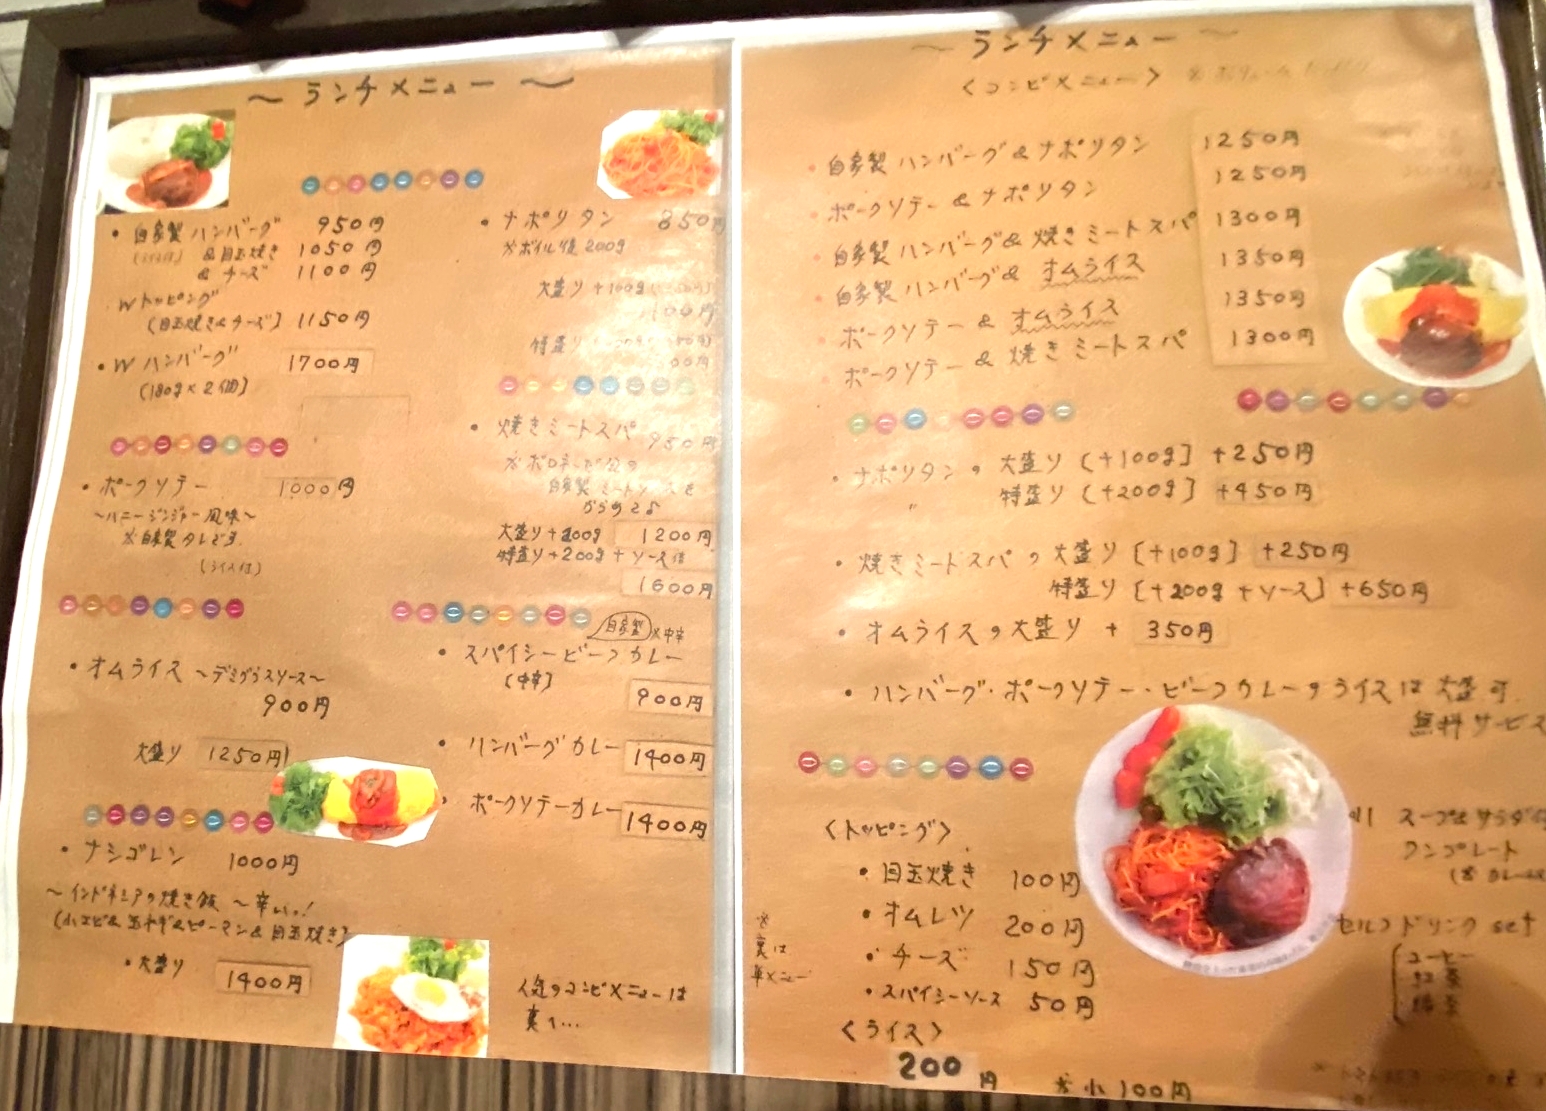 ～ ランチメニュー ～
・自家製ハンバーグ 950円
(ライス付) &目玉焼き 1050円
&チーズ 1100円
Wトッピング
(目玉焼き&チーズ) 1150円
・Wハンバーグ 1700円
(180g×2個)
・ポークソテー 1000円
～ハニージンジャー風味～
※自家製タレです
(ライス付)
・オムライス ～デミグラスソース～
900円
大盛り 1250円
・ナシゴレン 1000円
～インドネシアの焼き飯 ～辛いっ!
(小エビ&玉ねぎ&ピーマン&目玉焼き)
・大盛り 1400円
・ナポリタン 850円
※ボイル後200g
大盛り+100g
特盛り
・焼きミートスパ 950円
自家製ミートソースを
からめて♪
大盛り+100g 1200円
特盛り+200g+ソース倍
1600円
自家製 ※中辛
・スパイシービーフカレー
(中辛)
900円
・ハンバーグカレー 1400円
・ポークソテーカレー 1400円
人気のコンビメニューは
裏で…
～ ランチメニュー ～
〈コンビメニュー〉
・自家製ハンバーグ&ナポリタン 1250円
・ポークソテー&ナポリタン 1250円
・自家製ハンバーグ&焼きミートスパ 1300円
・自家製ハンバーグ&オムライス 1350円
・ポークソテー&オムライス 1350円
・ポークソテー&焼きミートスパ 1300円
・ナポリタンの大盛り(+100g) +250円
〃 特盛り(+200g) +450円
・焼きミートスパの大盛り(+100g) +250円
特盛り(+200g+ソース) +650円
・オムライスの大盛り + 350円
・ハンバーグ・ポークソテー・ビーフカレーのライスは大盛可
無料サービス
〈トッピング〉
・目玉焼き 100円
・オムレツ 200円
・チーズ 150円
・スパイシーソース 50円
〈ライス〉
200円 ※小100円
※裏は
単メニュー
スープ&サラダ
ワンプレート
セルフドリンクset
コーヒー
紅茶